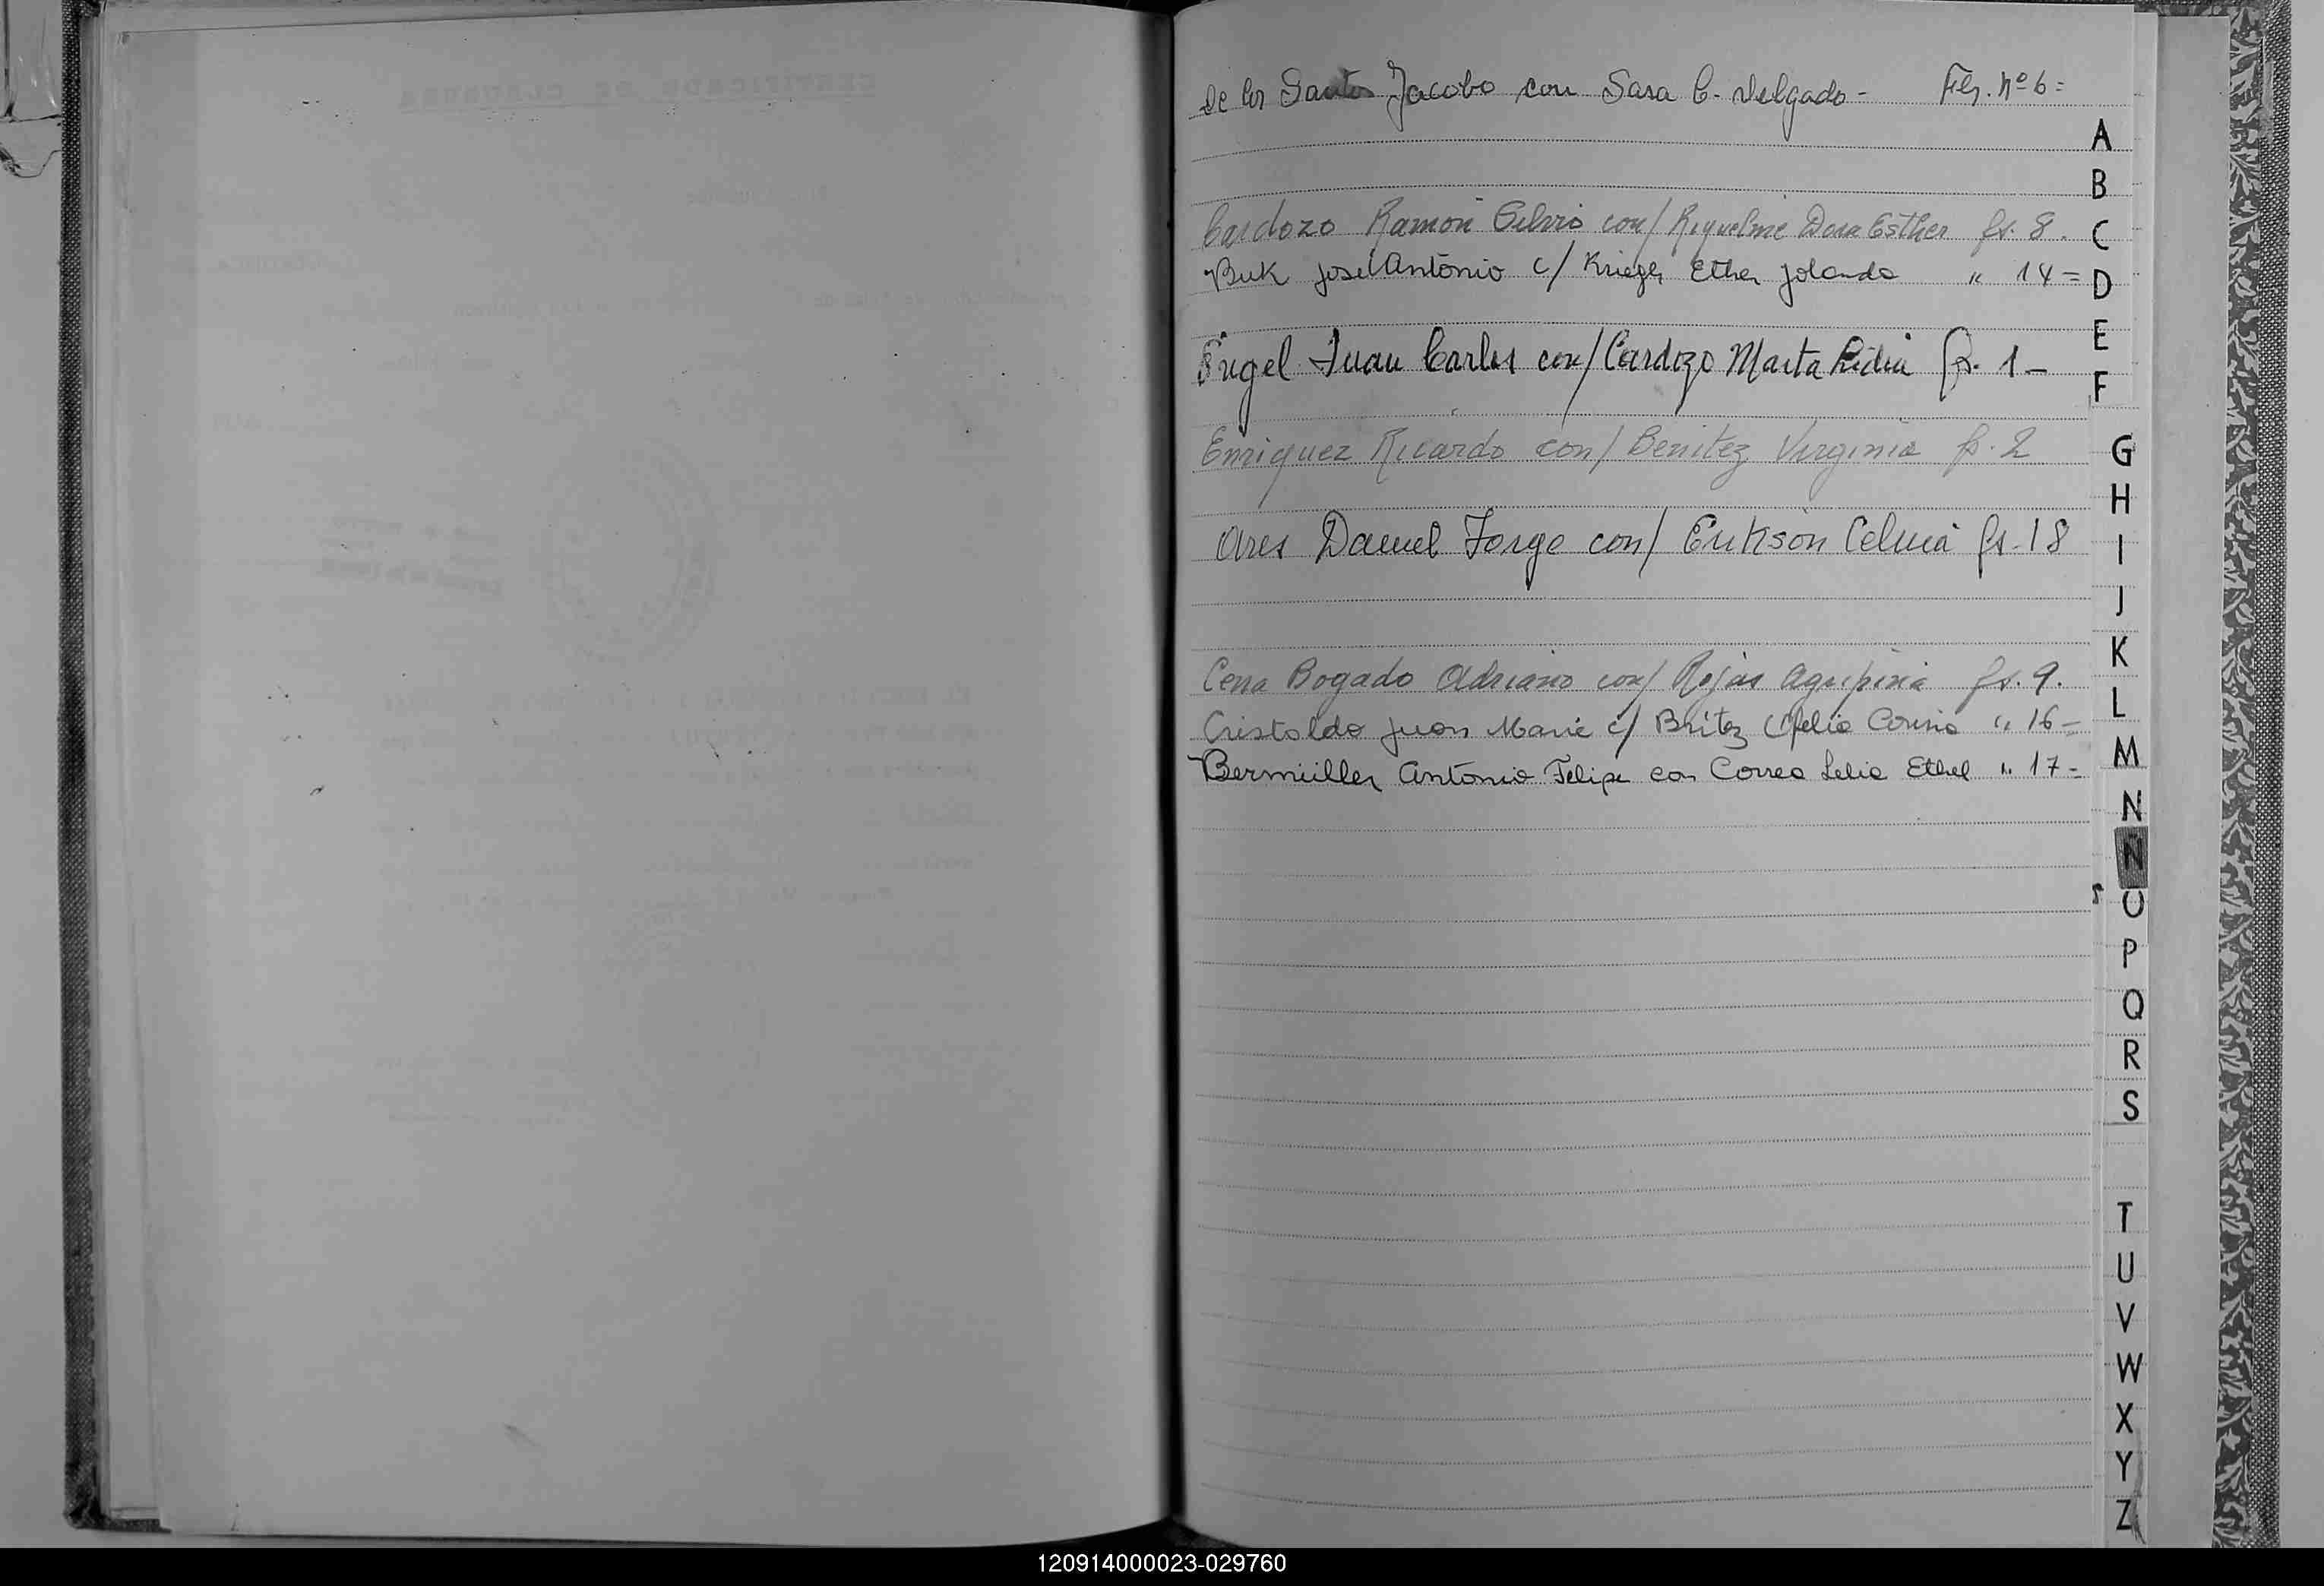 De los Santos Jacobo con Sara C. Delgado - Fls. Nº 6 =
A
B
Cardozo Ramón Silvio con/ Riquelme Dora Esther fs. 8.
C
Buk José Antonio c/ Krieger Ether Jolanda " 14 =
D
E
Engel Juan Carlos con/ Cardozo Marta Lidia fs. 1 -
F
Enriquez Ricardo con/ Benitez Virginia fs. 2
G
H
Ares Daniel Jorge con/ Erikson Celina fs. 18
I
J
K
Cena Bogado Adriano con/ Rojas Agripina fs. 9.
L
Cristaldo Juan Marie c/ Britez Ofelia " 16 =
M
Bermüller Antonio Felipe con Correa Lelia Ethel " 17 =
N
Ñ
O
P
Q
R
S
T
U
V
W
X
Y
Z
120914000023-029760